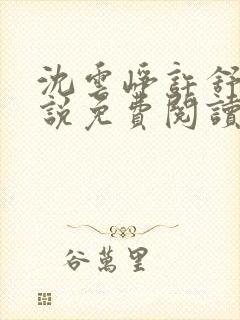 沈雲崢許舒
說免費閱讀
谷萬里